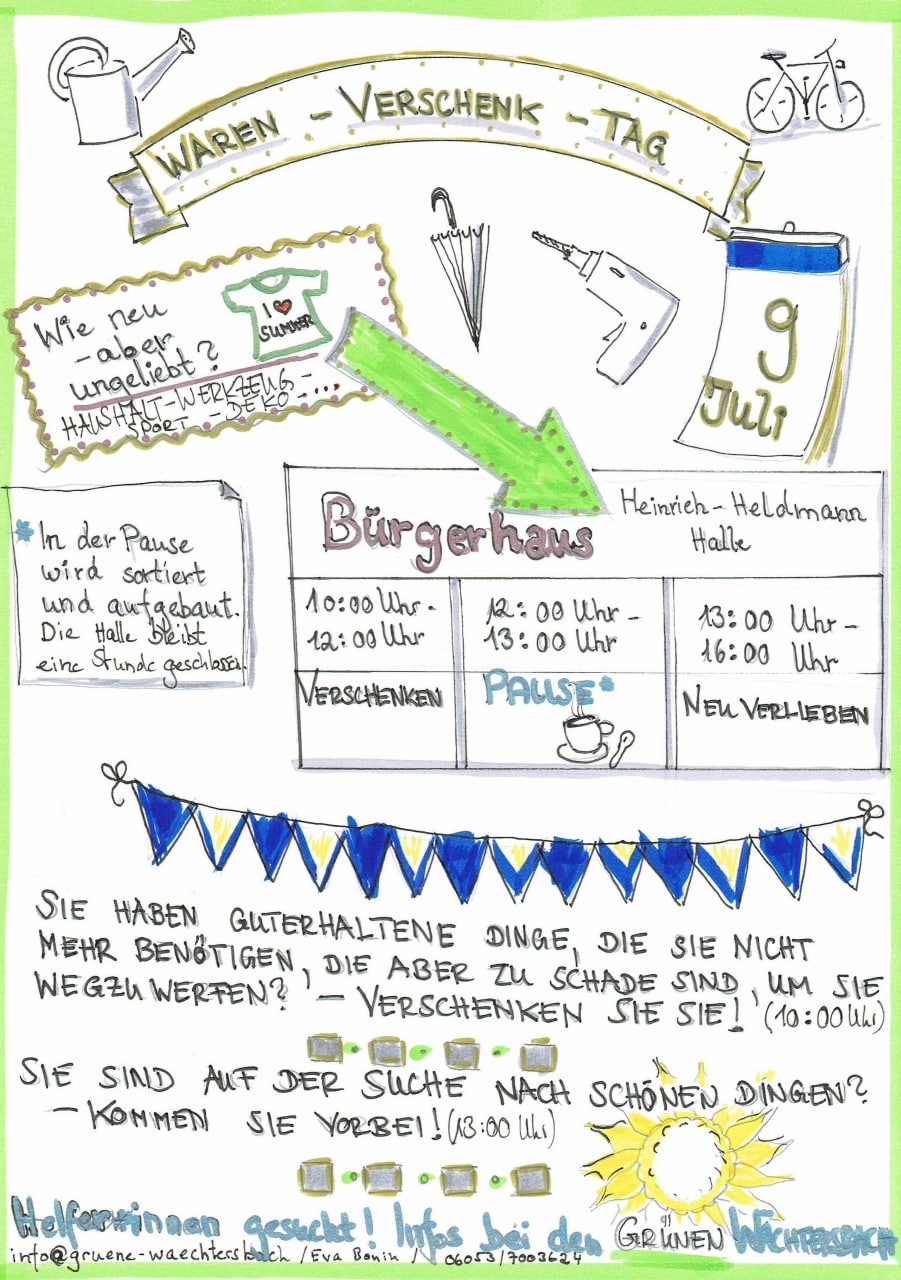 WAREN - VERSCHENK - TAG
Wie neu
- aber
ungeliebt?
I ♥
SUMMER
HAUSHALT-WERKZEUG -
SPORT - DEKO - ...
9
Juli
Bürgerhaus
Heinrich-Heldmann
Halle
* In der Pause
wird sortiert
und aufgebaut.
Die Halle bleibt
eine Stunde geschlossen.
10:00 Uhr -
12:00 Uhr
VERSCHENKEN
12:00 Uhr -
13:00 Uhr
PAUSE*
13:00 Uhr -
16:00 Uhr
NEU VERLIEBEN
SIE HABEN GUTERHALTENE DINGE, DIE SIE NICHT
MEHR BENÖTIGEN, DIE ABER ZU SCHADE SIND, UM SIE
WEGZUWERFEN? - VERSCHENKEN SIE SIE! (10:00 Uhr)
SIE SIND AUF DER SUCHE NACH SCHÖNEN DINGEN?
- KOMMEN SIE VORBEI! (13:00 Uhr)
Helfer*innen gesucht! Infos bei den GRÜNEN WÄCHTERSBACH
info@gruene-waechtersbach / Eva Bonin / 06053/7003624